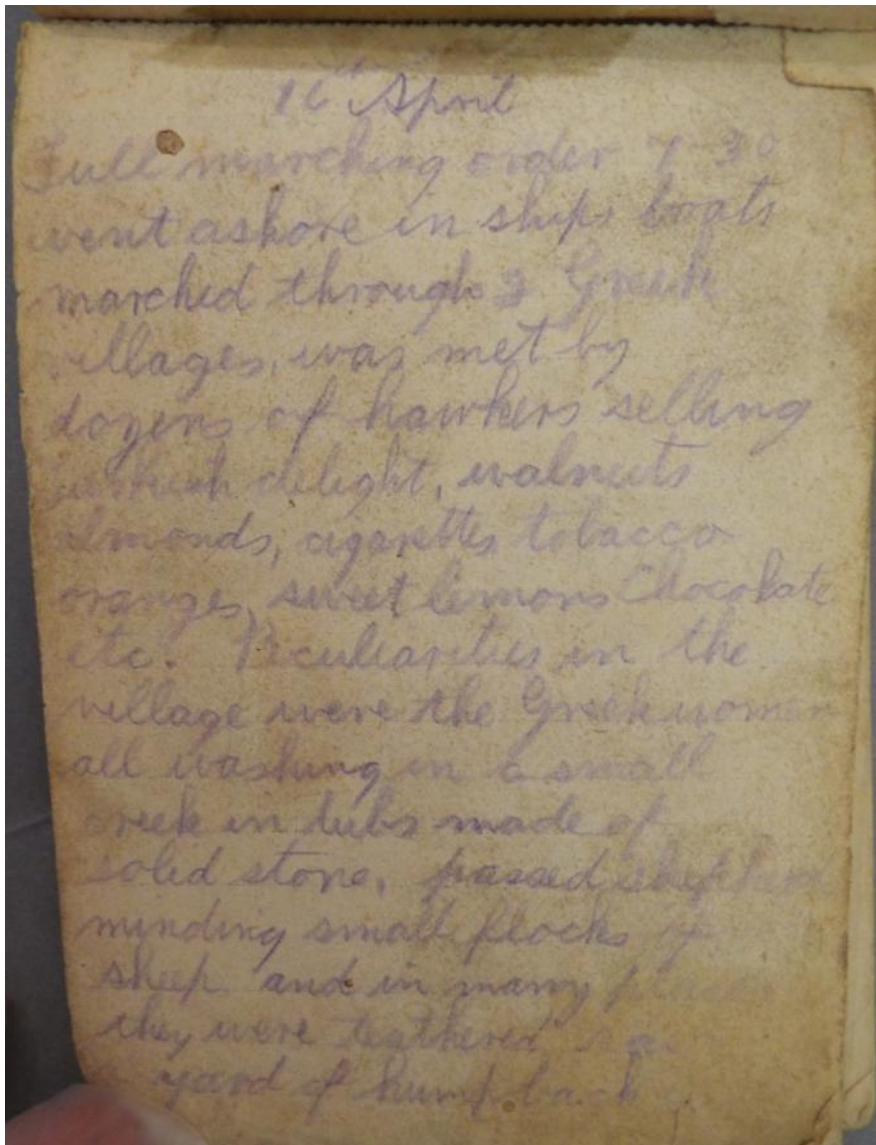 16th April
Full marching order 7-30
went ashore in ships boats
marched through 2 Greek
villages, was met by
dozens of hawkers selling
turkish delight, walnuts
almonds, cigarettes tobacco
oranges, sweet lemons Chocolate
etc. Peculiarities in the
village were the Greek women
all washing in a small
creek in tubs made of
solid stone, passed shepherds
minding small flocks of
sheep and in many places
they were teathered
yard of humpback